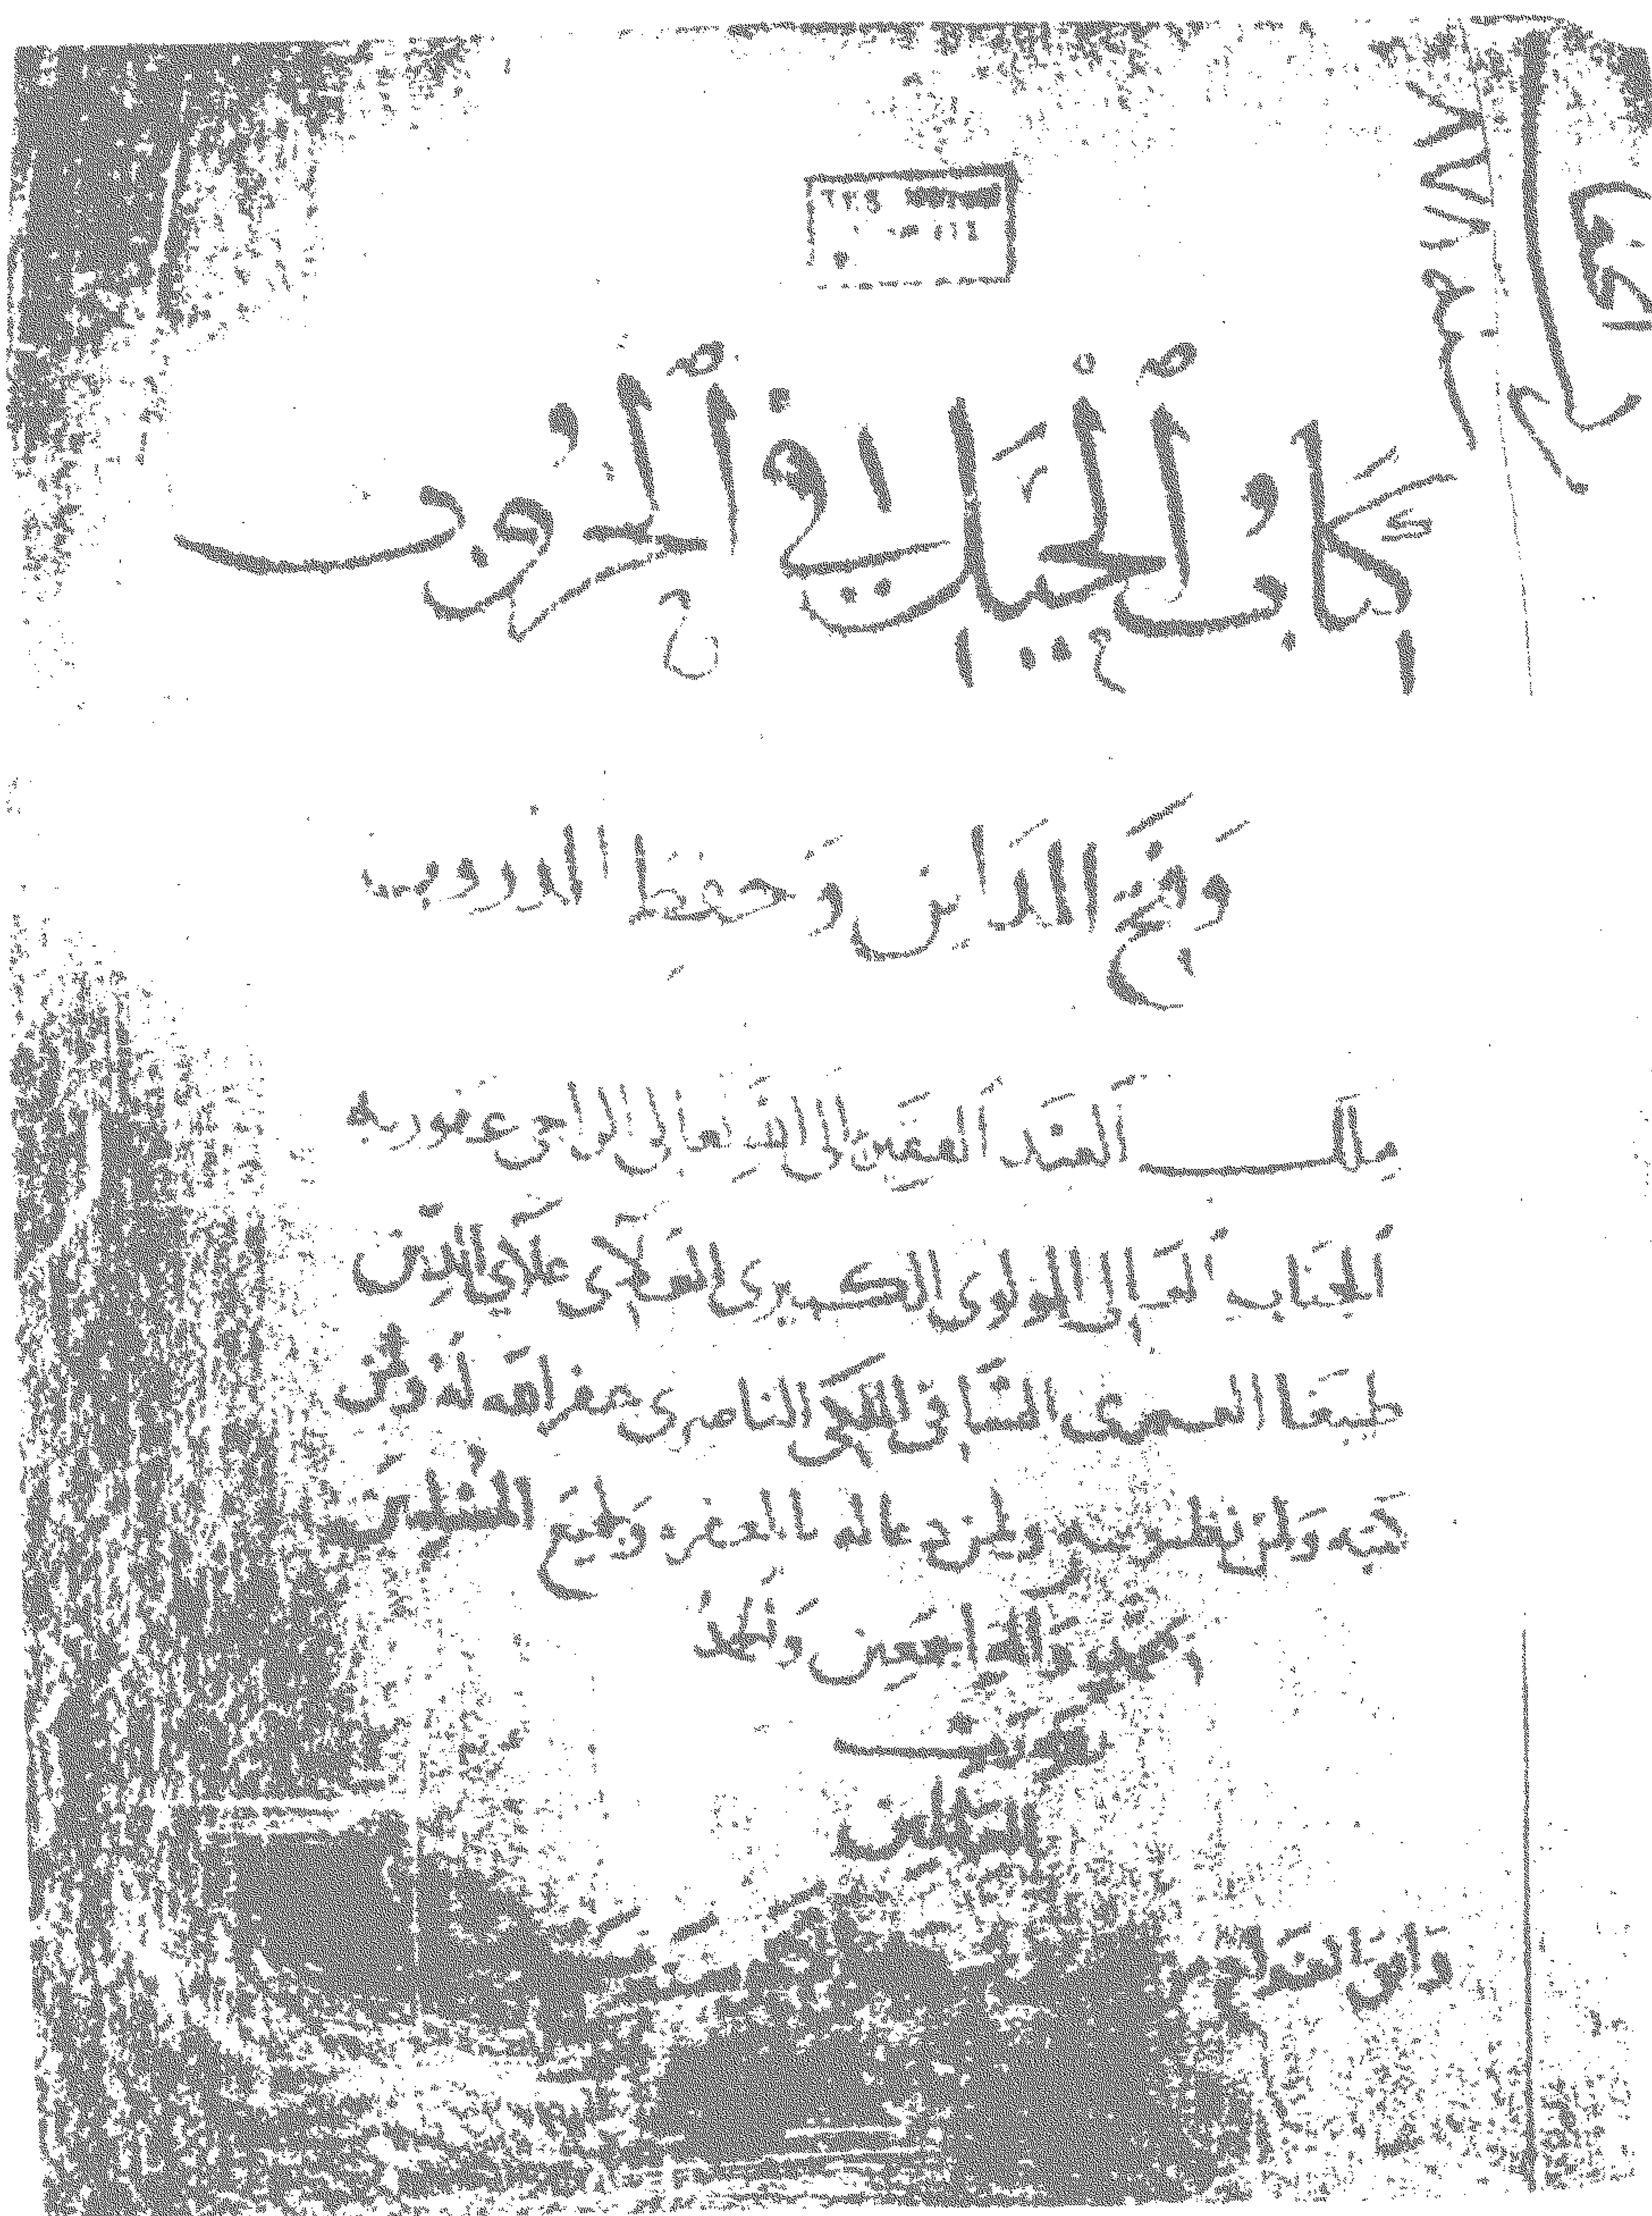 كتاب الحيل في الحروب
وفتح المداين وحفظ الدروب
ملك العبد الفقير الى الله تعالى الراجي عفو ربه
الجناب العالي المولوي الكبيري العلاى علاي الدين
طيبغا العمري الساقي الملكي الناصري غفر الله له ولمن
كتبه ولمن نظر فيه ولمن دعا له بالمغفرة ولجميع المسلمين
اجمعين والحمد
لله رب
العالمين